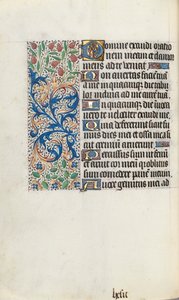 Domine exaudi oratio
nem meam et clamor
meus ad te veniat
Non avertas faciem tuā
a me in quacunque die tribu
lor inclina ad me aurem tuā
In quacunque die invoca
vero te velociter exaudi me
Quia defecerunt sicut fu
mus dies mei et ossa mea si
cut gremium aruerunt
Percussus sum ut fenū
et aruit cor meum quia oblitus
sum comedere panem meum
A voce gemitus mei ad